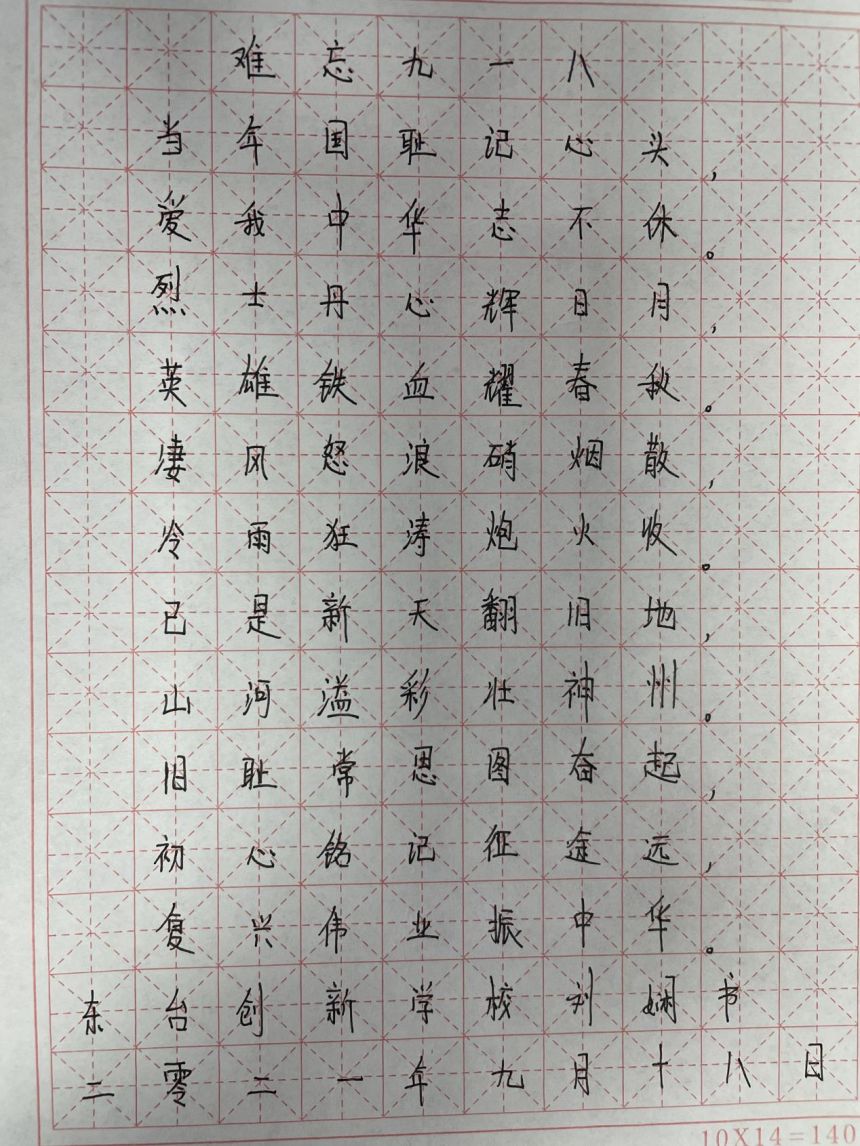 难忘九一八
当年国耻记心头，
爱我中华志不休。
烈士丹心辉日月，
英雄铁血耀春秋。
凄风怒浪硝烟散，
冷雨狂涛炮火收。
已是新天翻旧地，
山河溢彩壮神州。
旧耻常思图奋起，
初心铭记征途远，
复兴伟业振中华。
东台创新学校刘娴书
二零二一年九月十八日
10X14=140